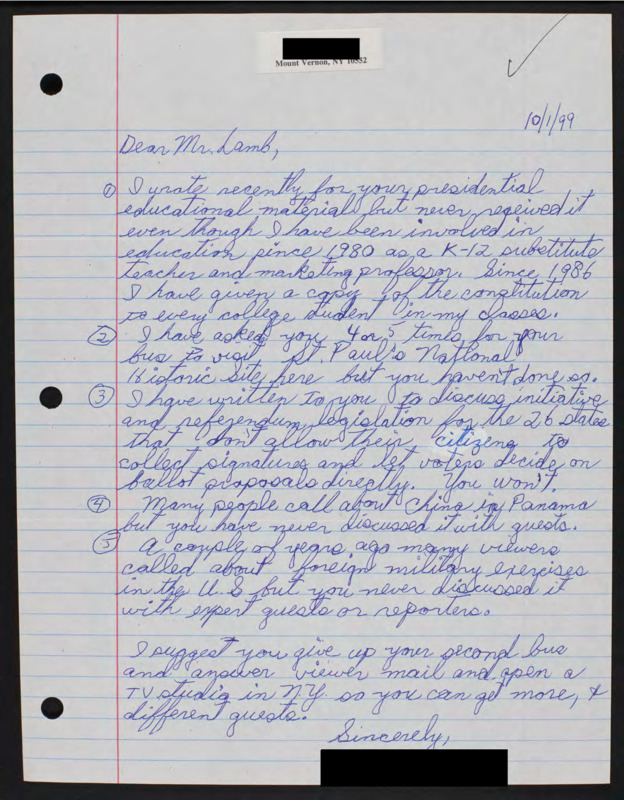 Mount Vernon, NY 10552
10/1/99
Dear Mr. Lamb,
① I wrote recently for your presidential
educational materials but never received it
even though I have been involved in
education since 1980 as a K-12 substitute
teacher and marketing professor. Since 1986
I have given a copy of the constitution
to every college student in my classes.
② I have asked you 4 or 5 times for your
bus to visit St. Paul's National
Historic Site here but you haven't done so.
③ I have written to you to discuss initiative
and referendum legislation for the 26 states
that don't allow their citizens to
collect signatures and let voters decide on
ballot proposals directly. You won't.
④ Many people call about China in Panama
but you have never discussed it with guests.
⑤ A couple of years ago many viewers
called about foreign military exercises
in the U.S but you never discussed it
with expert guests or reporters.
I suggest you give up your second bus
and answer viewer mail and open a
TV studio in N.Y. so you can get more, &
different guests.
Sincerely,